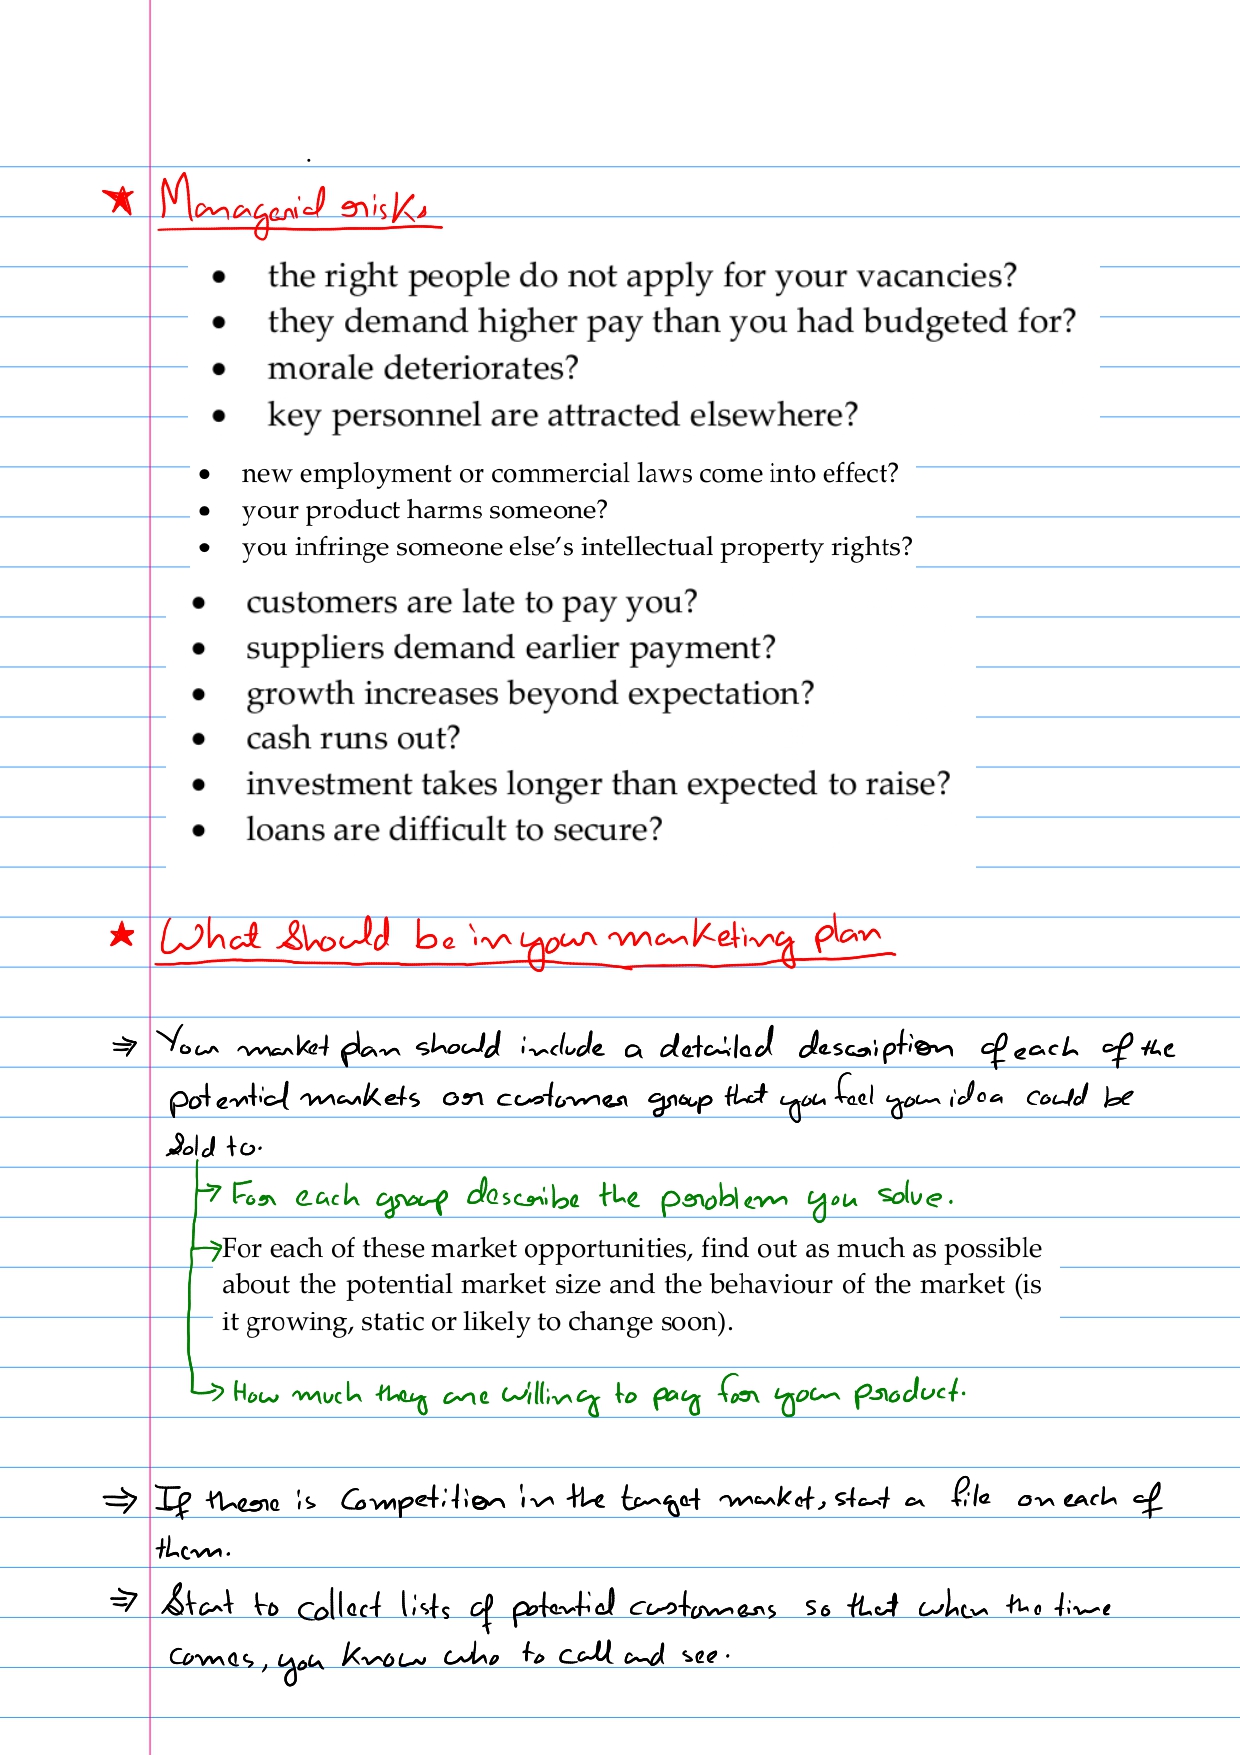 ★ Managerial risks
• the right people do not apply for your vacancies?
• they demand higher pay than you had budgeted for?
• morale deteriorates?
• key personnel are attracted elsewhere?
• new employment or commercial laws come into effect?
• your product harms someone?
• you infringe someone else’s intellectual property rights?
• customers are late to pay you?
• suppliers demand earlier payment?
• growth increases beyond expectation?
• cash runs out?
• investment takes longer than expected to raise?
• loans are difficult to secure?
★ What should be in your marketing plan
⇒ Your market plan should include a detailed description of each of the
potential markets or customer group that you feel your idea could be
sold to.
→ For each group describe the problem you solve.
→ For each of these market opportunities, find out as much as possible
about the potential market size and the behaviour of the market (is
it growing, static or likely to change soon).
→ How much they are willing to pay for your product.
⇒ If there is competition in the target market, start a file on each of
them.
⇒ Start to collect lists of potential customers so that when the time
comes, you know who to call and see.